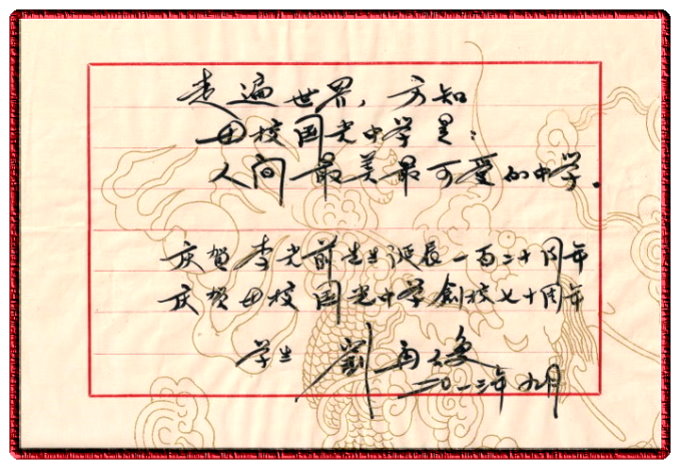 走遍世界，方知
母校国光中学是：
人间最美最可爱的中学。
庆贺李光前先生诞辰一百二十周年
庆贺母校国光中学创校七十周年
学生 劉再復
二〇一三年九月